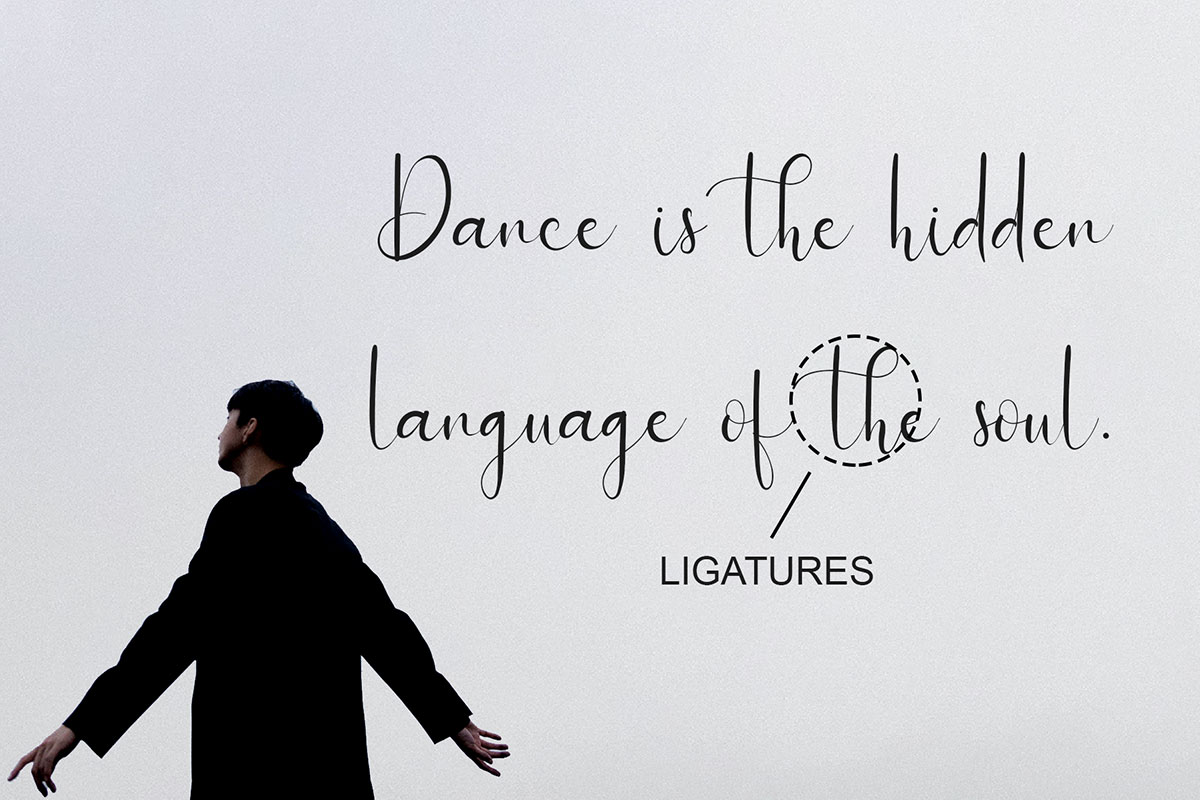 Dance is the hidden
language of the soul.
LIGATURES